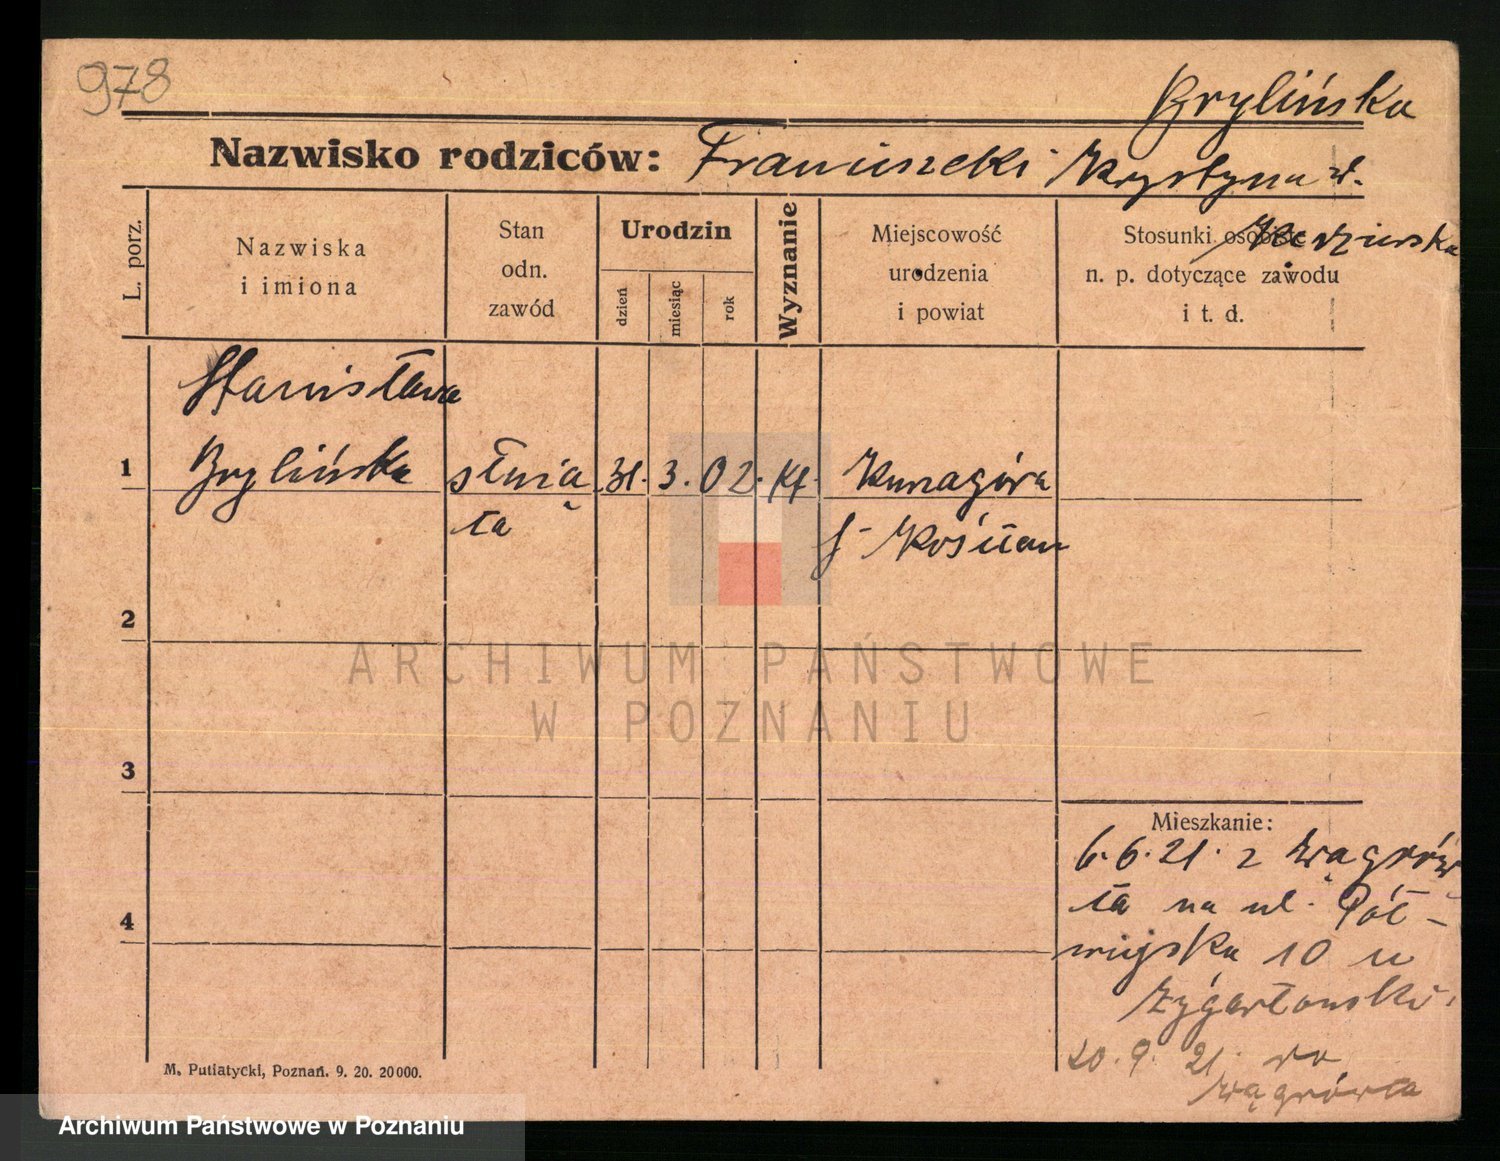 978
Brylińska
Nazwisko rodziców: Franciszek i Krystyna z d.
L. porz.
Nazwiska
i imiona
Stan
odn.
zawód
Urodzin
dzień
miesiąc
rok
Wyznanie
Miejscowość
urodzenia
i powiat
Stosunki osobiste
n. p. dotyczące zawodu
i t. d.
Stanisława
1 Brylińska słu 31. 3. 02. kt. Kunagóra
ta Kościan
2
3
4
Mieszkanie:
6.6.21. z Wągrów
ca na ul. Pół-
wiejska 10 u
20.9.21. do
Wągrówca
M. Putiatycki, Poznań. 9. 20. 20000.
ARCHIWUM PAŃSTWOWE
W POZNANIU
Archiwum Państwowe w Poznaniu